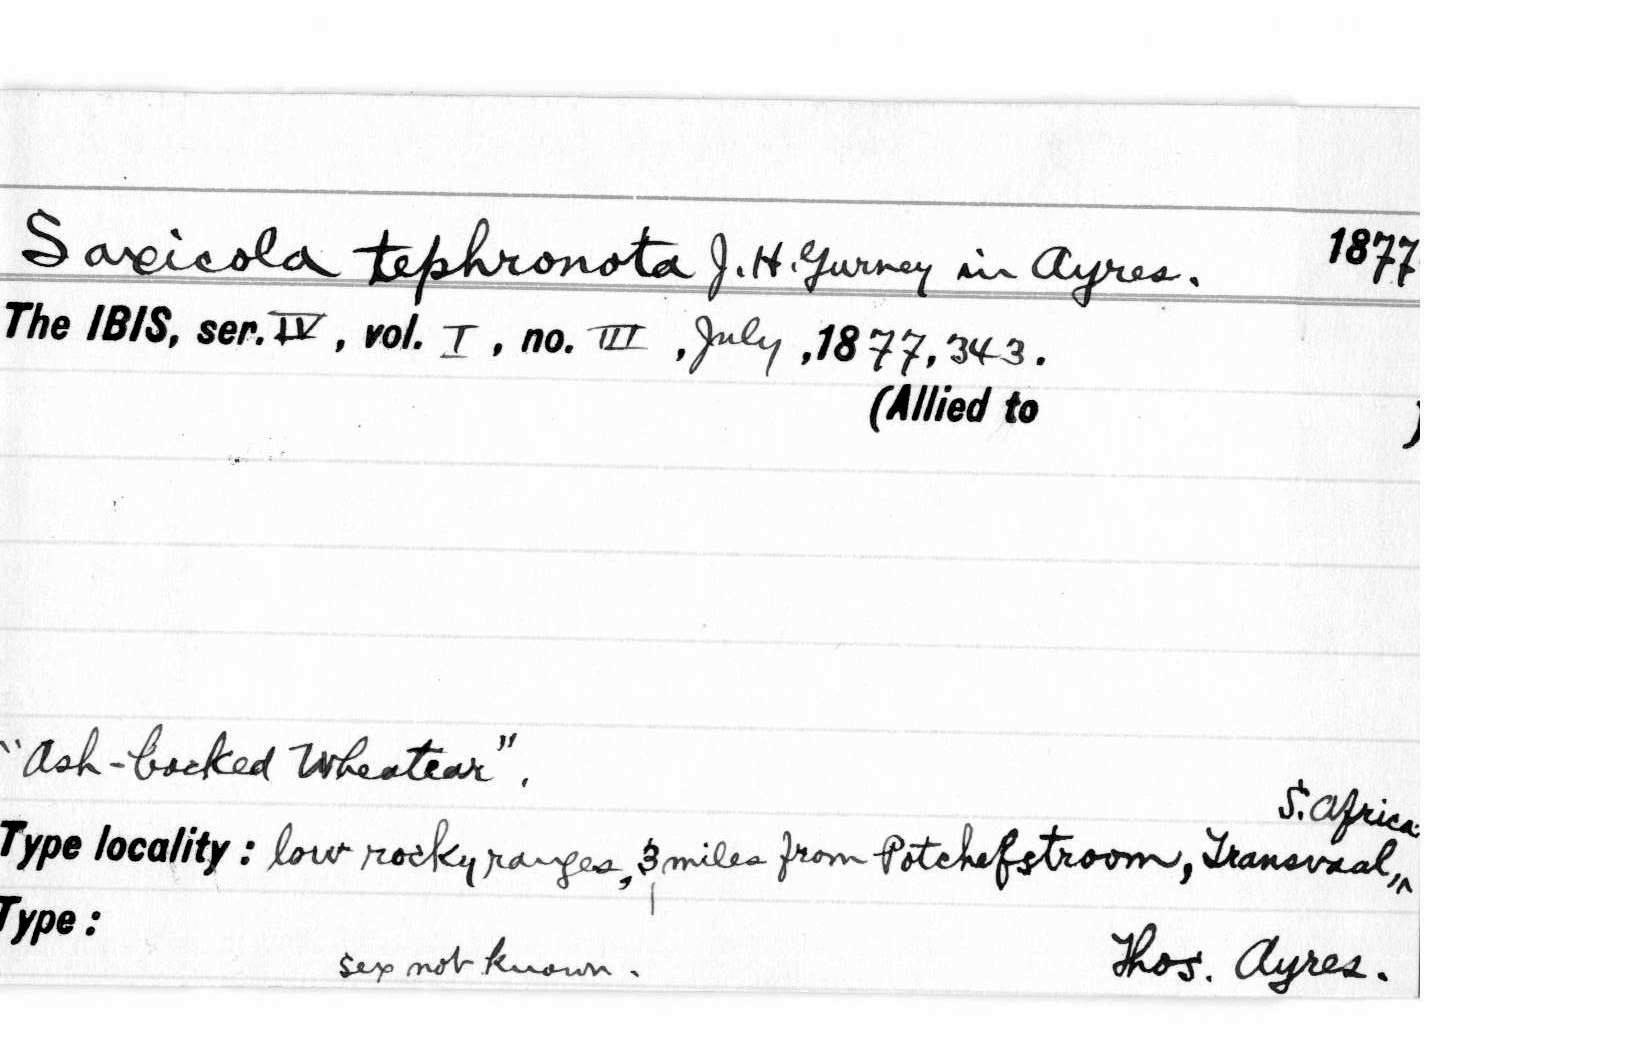 Saxicola tephronota J.H. Gurney in Ayres. 1877
The IBIS, ser. IV, vol. I, no. III, July, 1877, 343.
(Allied to )
"Ash-backed Wheatear".
S. Africa.
Type locality: low rocky ranges, 3 miles from Potchefstroom, Transvaal,
Type:
sex not known. Thos. Ayres.